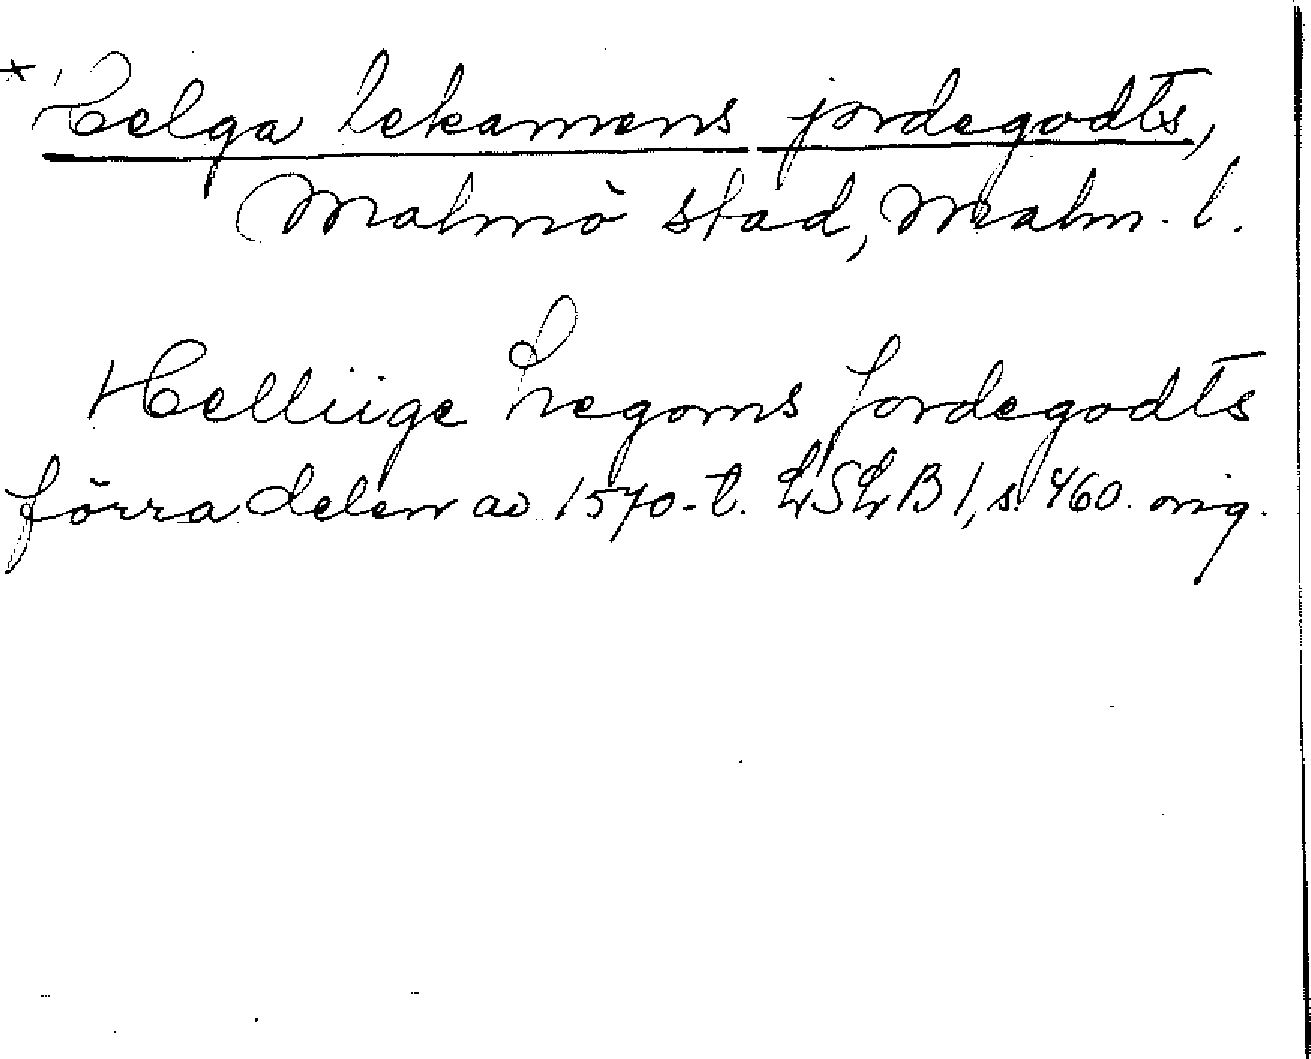 * Helga lekamens jordegodts,
Malmö stad, Malm. l.
Helliige Legoms Jordegodts
förra delen av 1570-t. LSLB 1, s. 460. orig.